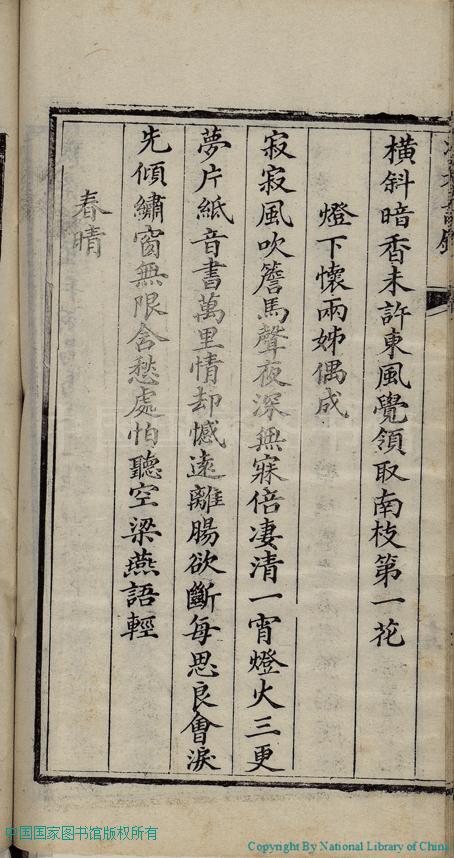 橫斜暗香未許東風覺領取南枝第一花
燈下懷兩姊偶成
寂寂風吹簷馬聲夜深無寐倍凄清一宵燈火三更
夢片紙音書萬里情却憾遠離腸欲斷每思良會淚
先傾繡窗無限含愁處怕聽空梁燕語輕
春晴
中国国家图书馆版权所有
Copyright By National Library of China